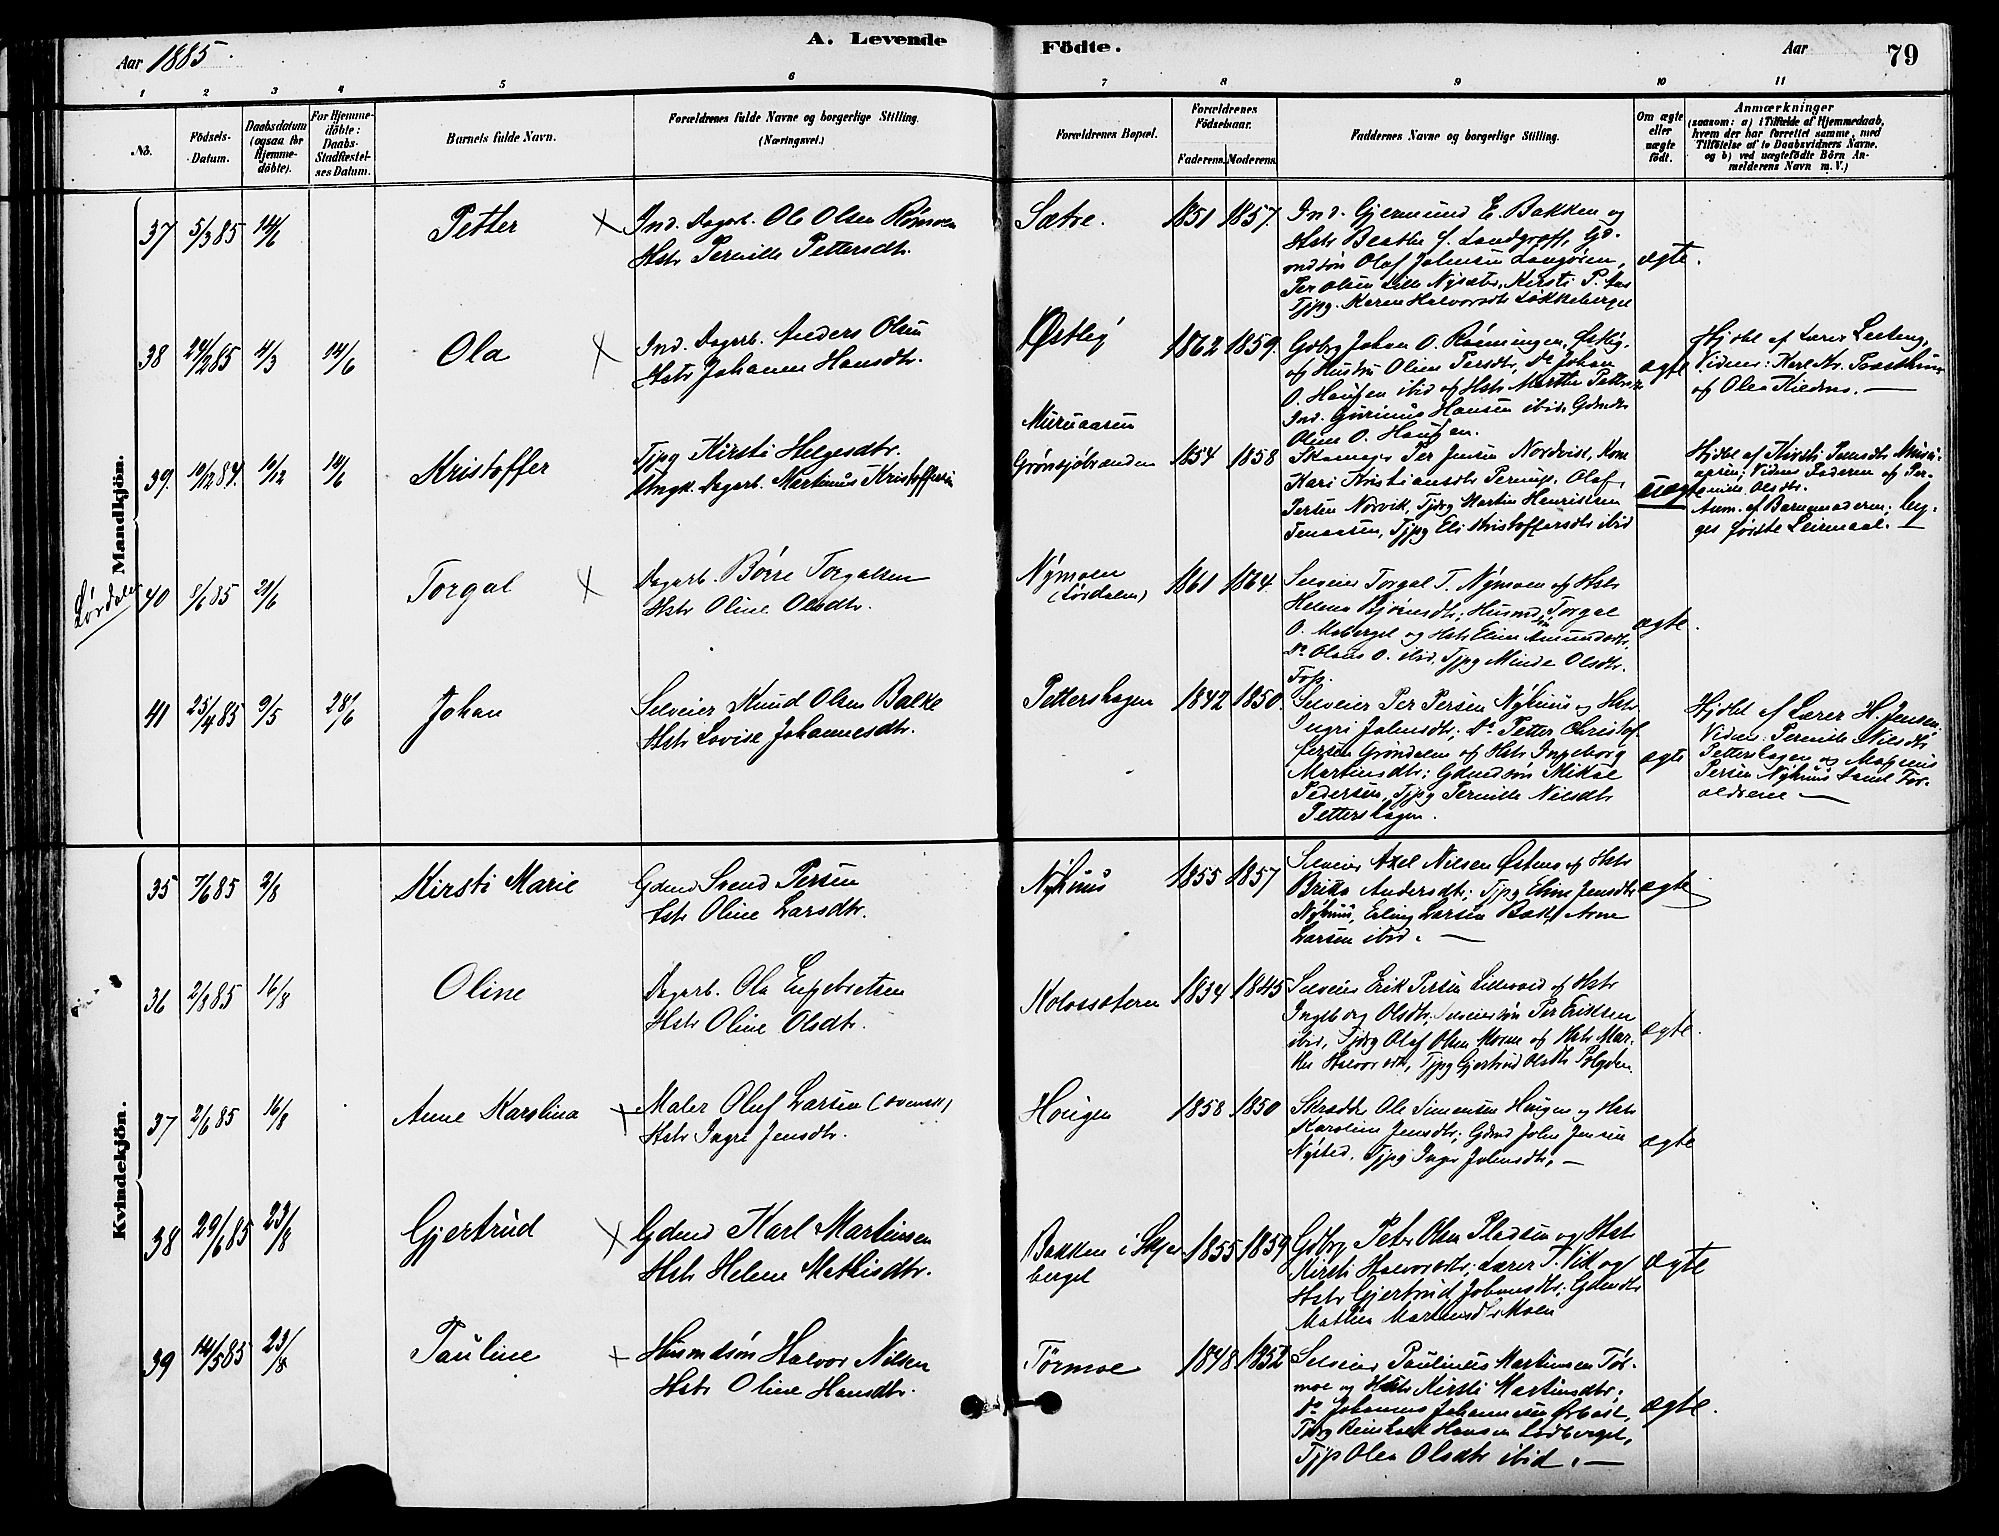 Aar 1885.
A. Levende Födte.
Aar
79
1 2 3 4 5 6 7 8 9 10 11
No.
Födsels-Datum.
Daabsdatum (ogsaa for Hjemmedöbte).
For Hjemmedöbte: Daabs-Stadfæstelses Datum.
Barnets fulde Navn.
Forældrenes fulde Navne og borgerlige Stilling. (Næringsvei.)
Forældrenes Bopæl.
Forældrenes Födselsaar.
Faderens. Moderens.
Faddernes Navne og borgerlige Stilling.
Om ægte eller uægte födt.
Anmærkninger
(saasom: a) i Tilfælde af Hjemmedaab, hvem der har forrettet samme, med Tilföielse af to Daabsvidners Navne, og b) ved uægtefödte Börn Anmelderens Navn m. V.)
Mandkjön.
37 5/3 85 14/6 Petter
Ind. Dagarb. Ole Olsen
Hstr Pernille Pettersdtr.
Sætre. 1851 1857.
Ind. Gjermund E. Bakken og
Hstr Beathe
Olaf Johnsen
Per Olsen Lille Kirsti P.
Tjpg. Karen Halvorsdtr Løkkeberget
ægte.
38 24/2 85 4/3 14/6 Ola
Ind. Dagarb. Anders Olsen
Hstr Johanne Hansdtr.
Østlig 1862 1859.
Gdbrg Johan O. Rønningen, Østlig,
og Hustru Oline Persdtr, Do Johan
O. Haugen ibid og Hstr Marthe
Ind. Hansen ibid,
Oline O. Haugen.
ægte
Hjdbt af Lærer
Vidner: Karl
og Olea
39. 10/12 84. 10/12 14/6 Kristoffer
Tjpg Kirsti Helgesdtr.
Ungk. Dagarb. Martinus Kristoffersen
Muruaasen
Grønsjøbranden 1854 1858
Per Jensen Nordvik, Kone
Kari Kristiansdtr Olaf
Persen Norvik, Tjdrg Martin Henriksen
Tjpg Eli Kristoffersdtr ibid
uægte
Hjdbt af Kirsti
Vidner: Faderen og Per-
nille Olsdtr.
Anm. af Barnemoderen; beg-
ges første Leiermaal. —
Lørdalen
40 5/6 85 21/6 Torgal
Dagarb. Børre Torgalsen
Hstr Oline Olsdtr.
Nymoen
(Lørdalen) 1861 1864.
Selveier Torgal T. Nymoen og Hstr
Helene Bjørnsdtr; Torgal
O. Moberget og Hstr Eline Amundsdtr,
Do Olaus O. ibid, Tjpg Minda Olsdtr.
Foss.
ægte.
41 25/4 85 9/5 28/6 Johan
Selveier Knud Olsen Balke
Hstr Lovise Johannesdtr.
Pettershagen 1842 1850.
Selveier Per Persen Nyhuus og Hstr
Ingri Johnsdtr. Do Petter Christof
fersen Grøndalen og Hstr Ingeborg
Martinsdtr; Gdmdsøn Mikal
Pedersen, Tjpg Pernille Nilsdtr
Pettershagen.
ægte
Hjdbt af Lærer H. Jensen,
Vidner: Pernille Nilsdtr
Pettershagen og Magnus
Persen Nyhuus samt For-
ældrene —
Kvindekjön.
35 7/6 85 2/8 Kirsti Marie
Gdmd Svend Persen
Hstr Oline Larsdtr.
Nyhuus 1855 1857
Selveier Axel Nilsen Østens og Hstr
Brita Andersdtr; Tjpg Eline Jensdtr
Nyhuus, Erling Larsen Bækk, Arne
Larsen ibid. —
ægte
36 2/8 85 16/8 Oline
Dagarb. Ola Engebretsen
Hstr Oline Olsdtr.
Kolossæteren 1834 1845
Selveier Erik Persen og Hstr
Ingeborg Olsdtr, Selveiersøn Per Eriksen
ibid, Tjdrg Olaf Olsen Moene og Hstr Mar-
the Halvorsdtr, Tjpg Gjertrud Olsdtr
ægte.
37 2/6 85 16/8 Anne Karolina
Maler Oluf Larsen (svensk)
Hstr Ingri Jensdtr.
Hougen 1858 1850
Skrædder Ole Simensen Hougen og Hstr
Karoline Jensdtr; Gdmd John Jensen
Nysted. Tjpg Inger Johnsdtr, —
ægte
38 29/6 85 23/8 Gjertrud
Gdmd Karl Martinsen
Hstr Helene Mathisdtr.
Bakken i Skjær
berget 1855 1859
Gdbrg Peter Olsen Pladsen og Hstr
Kirsti Halvorsdtr; Lærer T. Vik og
Hstr Gjertrud Johansdtr; Gdmdtr
Mathea Martinsdtr Moen
ægte
39 14/5 85 23/8 Pauline
Husmdsøn Halvor Nilsen
Hstr Oline Hansdtr.
Tørmoe 1848. 1852
Selveier Paulinus Martinsen Tør-
moe og Hstr Kirsti Martinsdtr;
Do Johannes Johannesen
Tjdrg Reinhart Hansen Lødberget,
Tjpg Olea Olsdtr ibid. —
ægte.